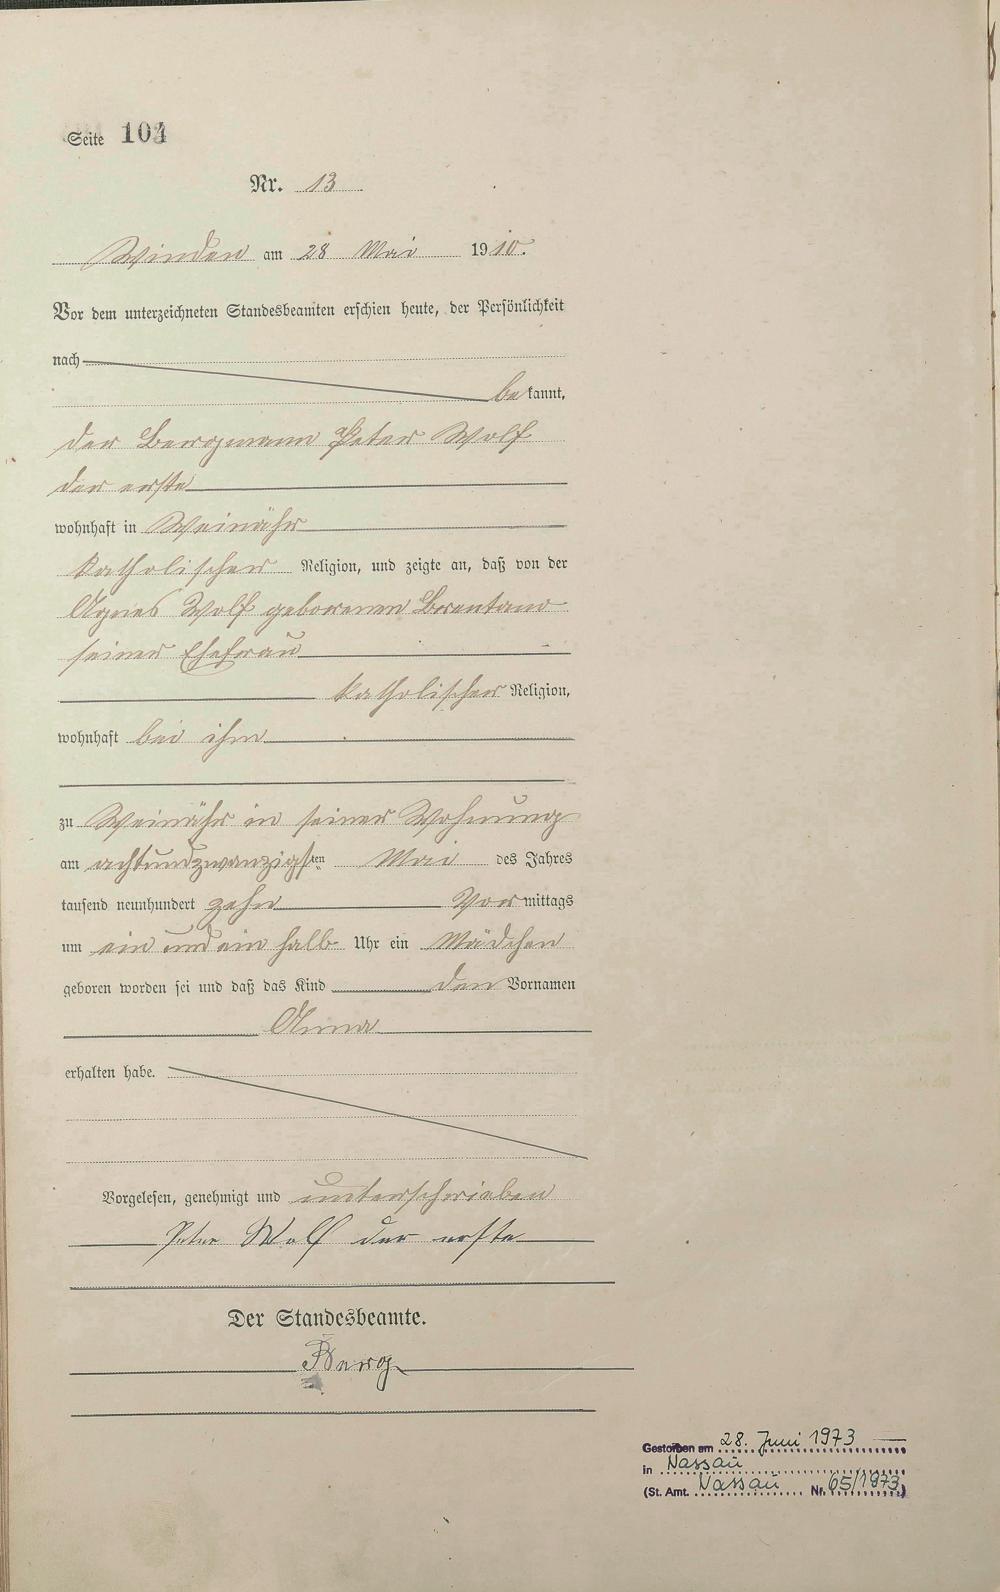 Seite 104
Nr. 13
Winden am 28 Mai 1910.
Vor dem unterzeichneten Standesbeamten erschien heute, der Persönlichkeit
nach
bekannt,
der Bergmann Peter Wolf
der erste
wohnhaft in Weinähr
katholischer Religion, und zeigte an, daß von der
Agnes Wolf geborenen Brentano
seiner Ehefrau
katholischer Religion,
wohnhaft bei ihm
zu Weinähr in seiner Wohnung
am achtundzwanzigsten Mai des Jahres
tausend neunhundert zehn Vormittags
um ein und ein halb Uhr ein Mädchen
geboren worden sei und daß das Kind den Vornamen
Anna
erhalten habe.
Vorgelesen, genehmigt und unterschrieben
Peter Wolf der erste
Der Standesbeamte.
Berg
Gestorben am 28. Juni 1973
in Nassau
(St. Amt. Nassau Nr. 65/1973)